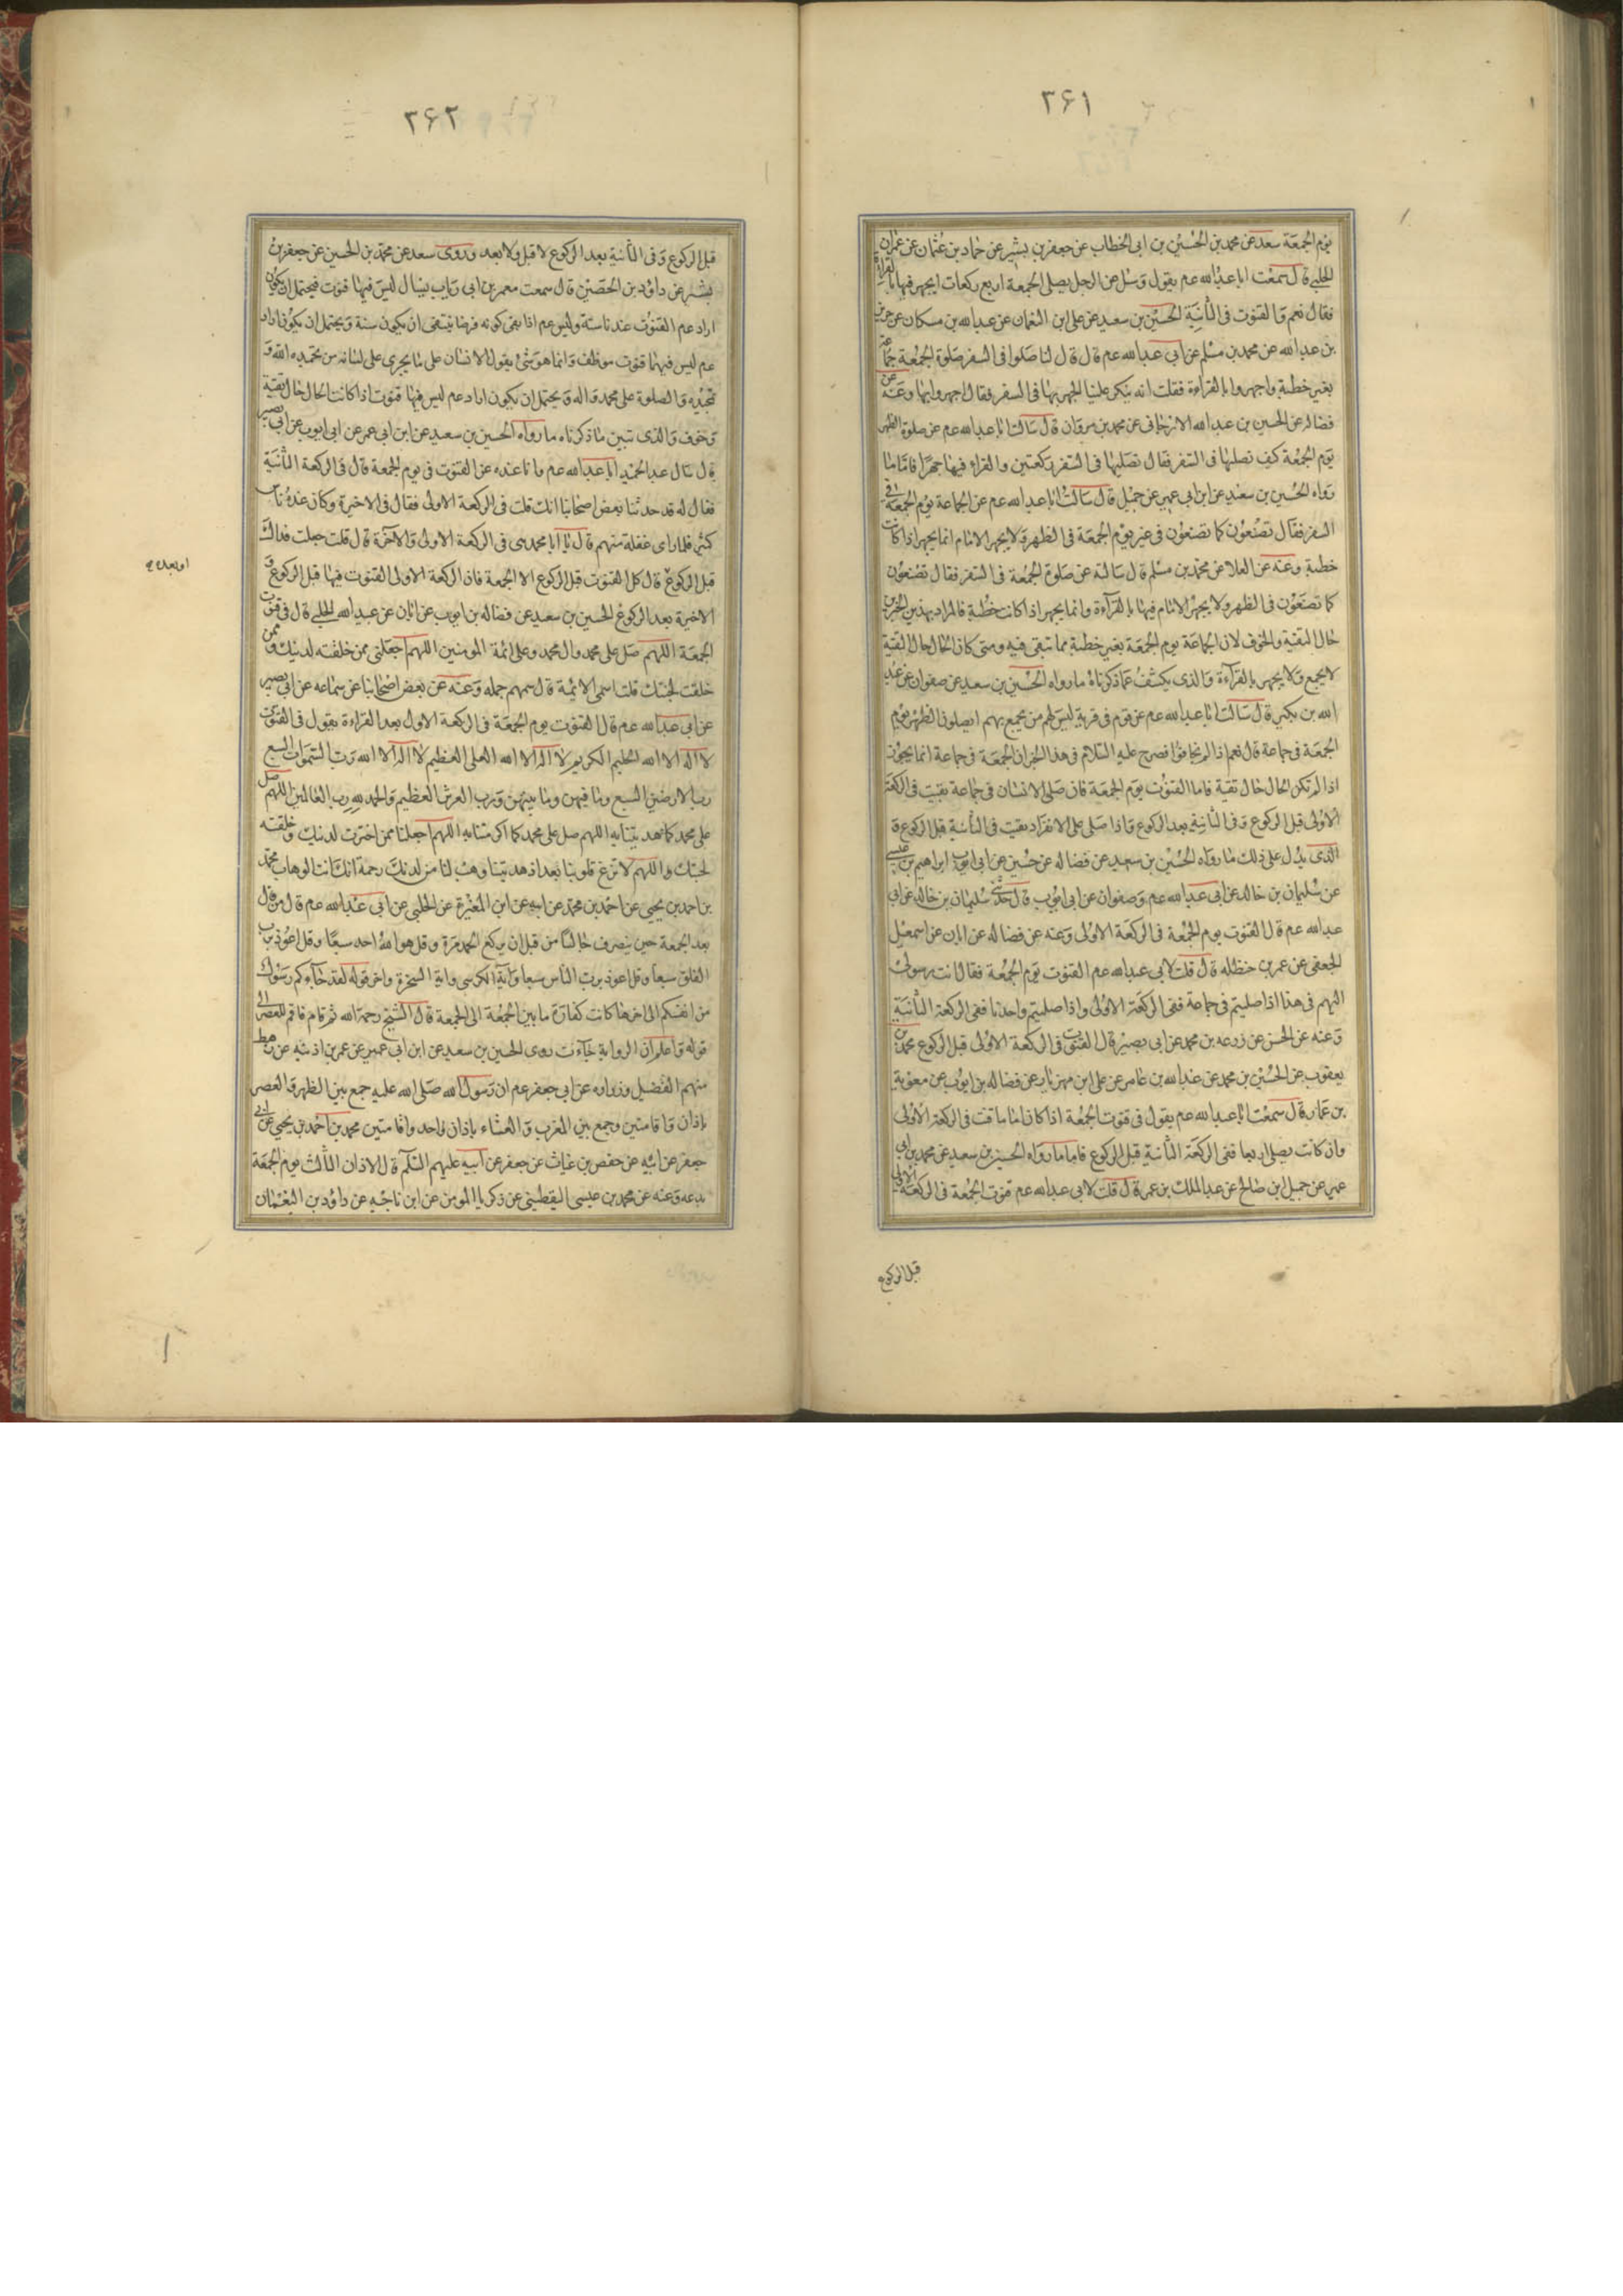 ۳۶۱
يوم الجمعة سعد عن محمد بن الحسين بن ابى الخطاب عن جعفر بن بشير عن حماد بن عثمان عن عمران
الحلبى قال سمعت ابا عبدالله عم يقول وسئل عن الرجل يصلى الجمعة اربع ركعات ايجهر فيها بالقراءة
فقال نعم والقنوت فى الثانية الحسين بن سعيد عن على ابن النعمان عن عبدالله بن مسكان عن حريز
بن عبدالله عن محمد بن مسلم عن ابى عبدالله عم قال قال لنا صلوا فى السفر صلوة الجمعة جماعة
بغير خطبة واجهروا بالقراءة فقلت انه ينكر علينا الجهر بها فى السفر فقال اجهروا بها وعنه عن
فضاله عن الحسين بن عبدالله الارجانى عن محمد بن مروان قال سالت ابا عبدالله عم عن صلوة الظهر
يوم الجمعة كيف نصليها فى السفر فقال تصليها فى السفر ركعتين والقراءة فيها جهرا فاما ما
رواه الحسين بن سعيد عن ابن ابى عمير عن جميل قال سالت ابا عبدالله عم عن الجماعة يوم الجمعة فى
السفر فقال تصنعون كما تصنعون فى غير يوم الجمعة فى الظهر ولا يجهر الامام انما يجهر اذا كانت
خطبة وعنه عن العلا عن محمد بن مسلم قال سالته عن صلوة الجمعة فى السفر فقال تصنعون
كما تصنعون فى الظهر ولا يجهر الامام فيها بالقرآءة وانما يجهر اذا كانت خطبة فالمراد بهذين الخبرين
حال التقية والخوف لان الجماعة يوم الجمعة بغير خطبة مما تبقى فيه ومتى كان الحال حال التقية
لا يجمع ولا يجهر بالقرآءة والذى يكشف عما ذكرناه ما رواه الحسين بن سعيد عن صفوان عن عبد
الله بن بكير قال سالت ابا عبدالله عم عن قوم فى قرية ليس لهم من يجمع بهم ايصلون الظهر يوم
الجمعة فى جماعة قال نعم اذا لم يخافوا فصرح عليه السلام فى هذا الخبر ان الجمعة فى جماعة انما يجوز
اذا لم تكن الحال حال تقية فاما القنوت يوم الجمعة فان صلى الانسان فى جماعة يقنت فى الركعة
الاولى قبل الركوع وفى الثانية بعد الركوع واذا صلى على الانفراد يقنت فى الثانية قبل الركوع و
الذى يدل على ذلك ما رواه الحسين بن سعيد عن فضاله عن حسين عن ابى ايوب ابراهيم بن عيسى
عن سليمان بن خالد عن ابى عبدالله عم وصفوان عن ابى ايوب قال حدثنى سليمان بن خالد عن ابى
عبدالله عم قال القنوت يوم الجمعة فى الركعة الاولى وعنه عن فضاله عن ابان عن اسمعيل
الجعفى عن عمر بن حنظله قال قلت لابى عبدالله عم القنوت يوم الجمعة فقال انت رسولى
اليهم فى هذا اذا صليتم فى جماعة ففى الركعة الاولى واذا صليتم واحدنا ففى الركعة الثانية
وعنه عن الحسن عن زرعه بن محمد عن ابى بصير قال القنوت فى الركعة الاولى قبل الركوع محمد بن
يعقوب عن الحسين بن محمد عن عبدالله بن عامر عن على ابن مهزيار عن فضاله بن ايوب عن معوية
بن عمار قال سمعت ابا عبدالله عم يقول فى قنوت الجمعة اذا كان اماما قنت فى الركعة الاولى
وان كانت يصلى اربعا ففى الركعة الثانية قبل الركوع فاما ما رواه الحسين بن سعيد عن محمد بن ابى
عمير عن جميل ابن صالح عن عبدالملك بن عمرو قال قلت لابى عبدالله عم قنوت الجمعة فى الركعة الاولى
قبل الركوع
۳۶۲
قبل الركوع وفى الثانية بعد الركوع لا قبل ولا بعد وروى سعد عن محمد بن الحسين عن جعفر بن
بشير عن داود بن الحصين قال سمعت معمر بن ابى رياب يسال ليس فيها قنوت فيحتمل ان يكون
اراد عم القنوت عند ناسته وليس عم اذا بقى كونه فرضا ينتفى ان يكون سنة ويحتمل ان يكون اراد
عم ليس فيهما قنوت موظف وانما هو شئ يقول الانسان على ما يجرى على لسانه من تحميده الله و
تمجيده والصلوة على محمد واله ويحتمل ان يكون اراد عم ليس فيها قنوت اذا كانت الحال حال تقية
وخوف والذى تبين ما ذكرناه ما رواه الحسين بن سعيد عن ابن ابى عمر عن ابى ايوب عن ابى بصير
قال سال عبد الحميد ابا عبدالله عم وانا عنده عن القنوت فى يوم الجمعة قال فى الركعة الثانية
فقال له قد حدثنا بعض اصحابنا انك قلت فى الركعة الاولى فقال فى الاخيرة وكان عنده ناس
كثير فلما راى غفلة منهم قال يا ابا محمد هى فى الركعة الاولى والآخرة قال قلت جعلت فداك
قبل الركوع قال كل القنوت قبل الركوع الا الجمعة فان الركعة الاولى القنوت فيها قبل الركوع و
الاخيرة بعد الركوع الحسين بن سعيد عن فضاله بن ايوب عن ابان عن عبيدالله الحلبى قال فى قنوت
الجمعة اللهم صل على محمد وال محمد وعلى ائمة المومنين اللهم اجعلنى ممن خلقته لدينك وممن
خلقت لجنتك قلت اسمى الائمة قال سمهم جمله وعنه عن بعض اصحابنا عن سماعه عن ابى بصير
عن ابى عبدالله عم قال القنوت يوم الجمعة فى الركعة الاولى بعد القراءة يقول فى القنوت
لا اله الا الله الحليم الكريم لا اله الا الله العلى العظيم لا اله الا الله رب السموات السبع
رب الارضين السبع وما فيهن وما بينهن ورب العرش العظيم والحمد لله رب العالمين اللهم صل
على محمد كما هديتنا به اللهم صل على محمد كما اكرمتنا به اللهم اجعلنا ممن اخترت لدينك وخلقته
لجنتك واللهم لا تزغ قلوبنا بعد اذ هديتنا وهب لنا من لدنك رحمة انك انت الوهاب محمد
بن احمد بن يحيى عن احمد بن محمد عن ابيه عن ابن المغيرة عن الحلبى عن ابى عبدالله عم قال من قال
بعد الجمعة حين ينصرف جالسا من قبل ان يركع الحمد مرة وقل هو الله احد سبعا وقل اعوذ برب
الفلق سبعا وقل اعوذ برب الناس سبعا واية الكرسى واية السخرة واخر قوله لقد جاءكم رسول
من انفسكم الى اخرها كانت كفارة ما بين الجمعة الى الجمعة قال الشيخ رحمة الله ثم قام فاقم للعصر الى
قوله واعلم ان الرواية جآءت روى الحسين بن سعيد عن ابن ابى عمير عن عمر بن اذينه عن رهط
منهم الفضيل وزراره عن ابى جعفر عم ان رسول الله صلى الله عليه جمع بين الظهر والعصر
باذان واقامتين وجمع بين المغرب والعشاء باذان واحد واقامتين محمد بن احمد بن يحيى عن ابى
جعفر عن ابيه عن حفص بن غياث عن جعفر عن ابيه عليهم السلام قال الاذان الثالث يوم الجمعة
بدعه وعنه عن محمد بن عيسى اليقطينى عن زكريا المومن عن ابن ناجيه عن داود بن النعمان